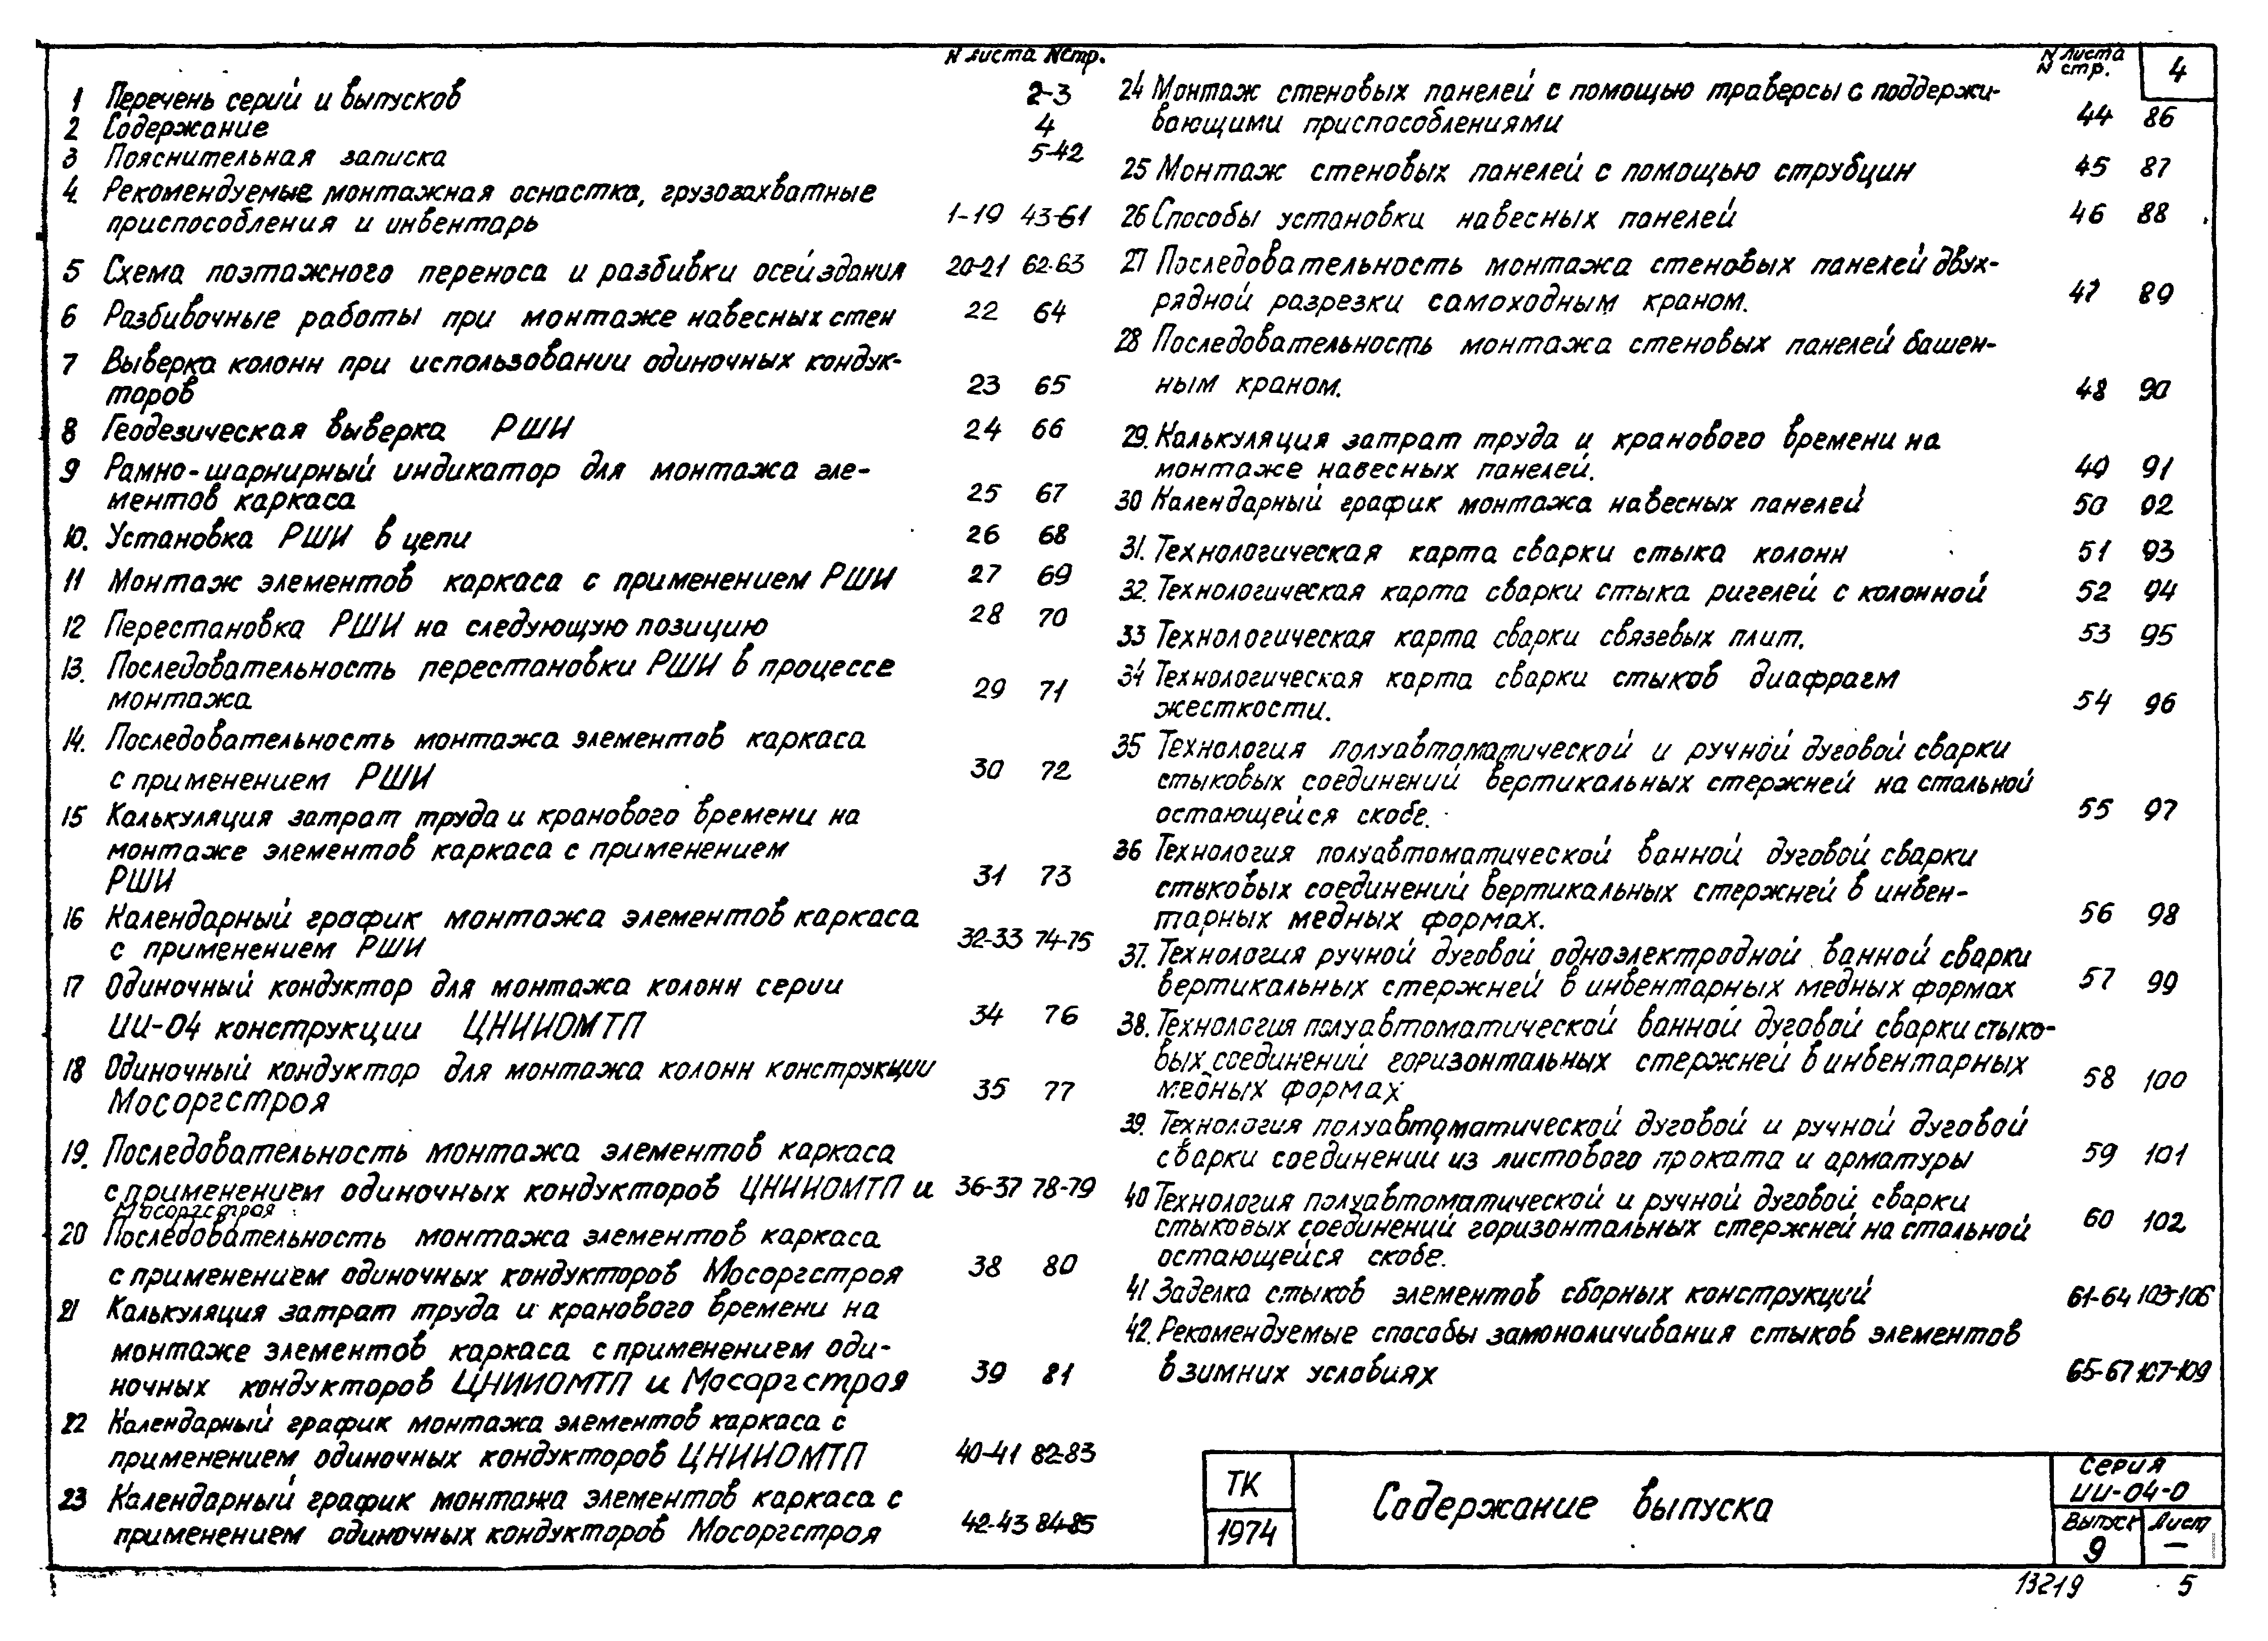 N листа Nстр.
1 Перечень серий и выпусков 2-3
2 Содержание 4
3 Пояснительная записка 5-42
4. Рекомендуемые монтажная оснастка, грузозахватные
приспособления и инвентарь 1-19 43-61
5 Схема поэтажного переноса и разбивки осей здания 20-21 62-63
6 Разбивочные работы при монтаже навесных стен 22 64
7 Выверка колонн при использовании одиночных кондук-
торов 23 65
8 Геодезическая выверка РШИ 24 66
9 Рамно-шарнирный индикатор для монтажа эле-
ментов каркаса 25 67
10. Установка РШИ в цепи 26 68
11 Монтаж элементов каркаса с применением РШИ 27 69
12 Перестановка РШИ на следующую позицию 28 70
13. Последовательность перестановки РШИ в процессе
монтажа 29 71
14. Последовательность монтажа элементов каркаса
с применением РШИ 30 72
15 Калькуляция затрат труда и кранового времени на
монтаже элементов каркаса с применением
РШИ 31 73
16 Календарный график монтажа элементов каркаса
с применением РШИ 32-33 74-75
17 Одиночный кондуктор для монтажа колонн серии
ИИ-04 конструкции ЦНИИОМТП 34 76
18 Одиночный кондуктор для монтажа колонн конструкции
Мосоргстроя 35 77
19. Последовательность монтажа элементов каркаса
с применением одиночных кондукторов ЦНИИОМТП и 36-37 78-79
Мосоргстроя
20 Последовательность монтажа элементов каркаса
с применением одиночных кондукторов Мосоргстроя 38 80
21 Калькуляция затрат труда и кранового времени на
монтаже элементов каркаса с применением оди-
ночных кондукторов ЦНИИОМТП и Мосоргстроя 39 81
22 Календарный график монтажа элементов каркаса с
применением одиночных кондукторов ЦНИИОМТП 40-41 82-83
23 Календарный график монтажа элементов каркаса с
применением одиночных кондукторов Мосоргстроя 42-43 84-85
N листа
N стр.
4
24 Монтаж стеновых панелей с помощью траверсы с поддержи-
вающими приспособлениями 44 86
25 Монтаж стеновых панелей с помощью струбцин 45 87
26 Способы установки навесных панелей 46 88
27 Последовательность монтажа стеновых панелей двух-
рядной разрезки самоходным краном. 47 89
28 Последовательность монтажа стеновых панелей башен-
ным краном. 48 90
29. Калькуляция затрат труда и кранового времени на
монтаже навесных панелей. 49 91
30 Календарный график монтажа навесных панелей 50 92
31. Технологическая карта сварки стыка колонн 51 93
32. Технологическая карта сварки стыка ригелей с колонной 52 94
33 Технологическая карта сварки связевых плит. 53 95
34 Технологическая карта сварки стыков диафрагм
жесткости. 54 96
35 Технология полуавтоматической и ручной дуговой сварки
стыковых соединений вертикальных стержней на стальной
остающейся скобе. 55 97
36 Технология полуавтоматической ванной дуговой сварки
стыковых соединений вертикальных стержней в инвен-
тарных медных формах. 56 98
37. Технология ручной дуговой одноэлектродной ванной сварки
вертикальных стержней в инвентарных медных формах 57 99
38. Технология полуавтоматической ванной дуговой сварки стыко-
вых соединений горизонтальных стержней в инвентарных
медных формах 58 100
39. Технология полуавтоматической дуговой и ручной дуговой
сварки соединении из листового проката и арматуры 59 101
40 Технология полуавтоматической и ручной дуговой сварки
стыковых соединений горизонтальных стержней на стальной 60 102
остающейся скобе.
41 Заделка стыков элементов сборных конструкций 61-64 103-106
42. Рекомендуемые способы замоноличивания стыков элементов
в зимних условиях 65-67 107-109
ТК
1974
Содержание выпуска
Серия
ИИ-04-0
Выпуск Лист
9 —
13219 5